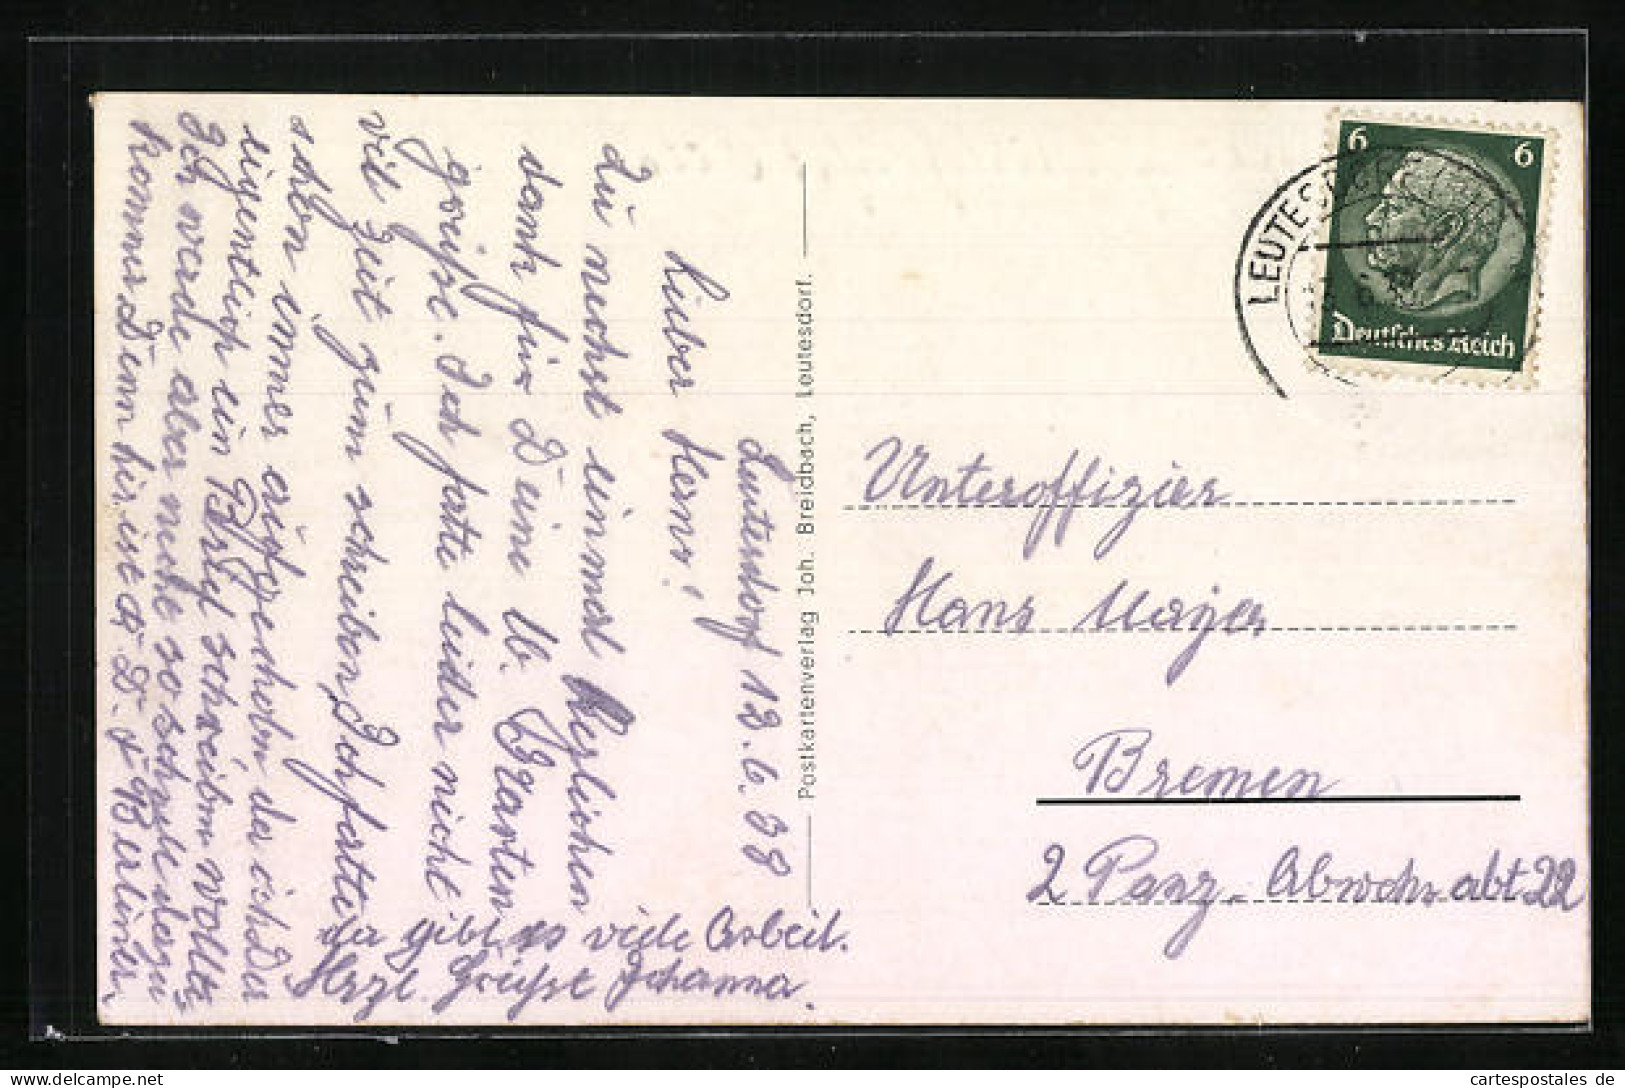 Leutesdorf 12.6.38
Lieber Herr!
Zu nechst einmal Herzlichen
dank für Deine lb. Karten
grüße. Ich hatte leider nicht
viel Zeit zum schreiben, Ich hatte
schon immer aufgeschoben, da ich Dir
eigentlich ein Brief schreiben wollte.
Ich werde aber nicht so schnell dazu
kommen Denn hier ist d. D. Berliner,
da gibt es viele Arbeit.
Herzl. Grüßt Johanna.
Postkartenverlag Joh. Breidbach, Leutesdorf.
6 6
Deutsches Reich
LEUTESDORF
Unteroffizier
Hans Mayer
Bremen
2 Panz. Abwehr abt 22
cartespostales de